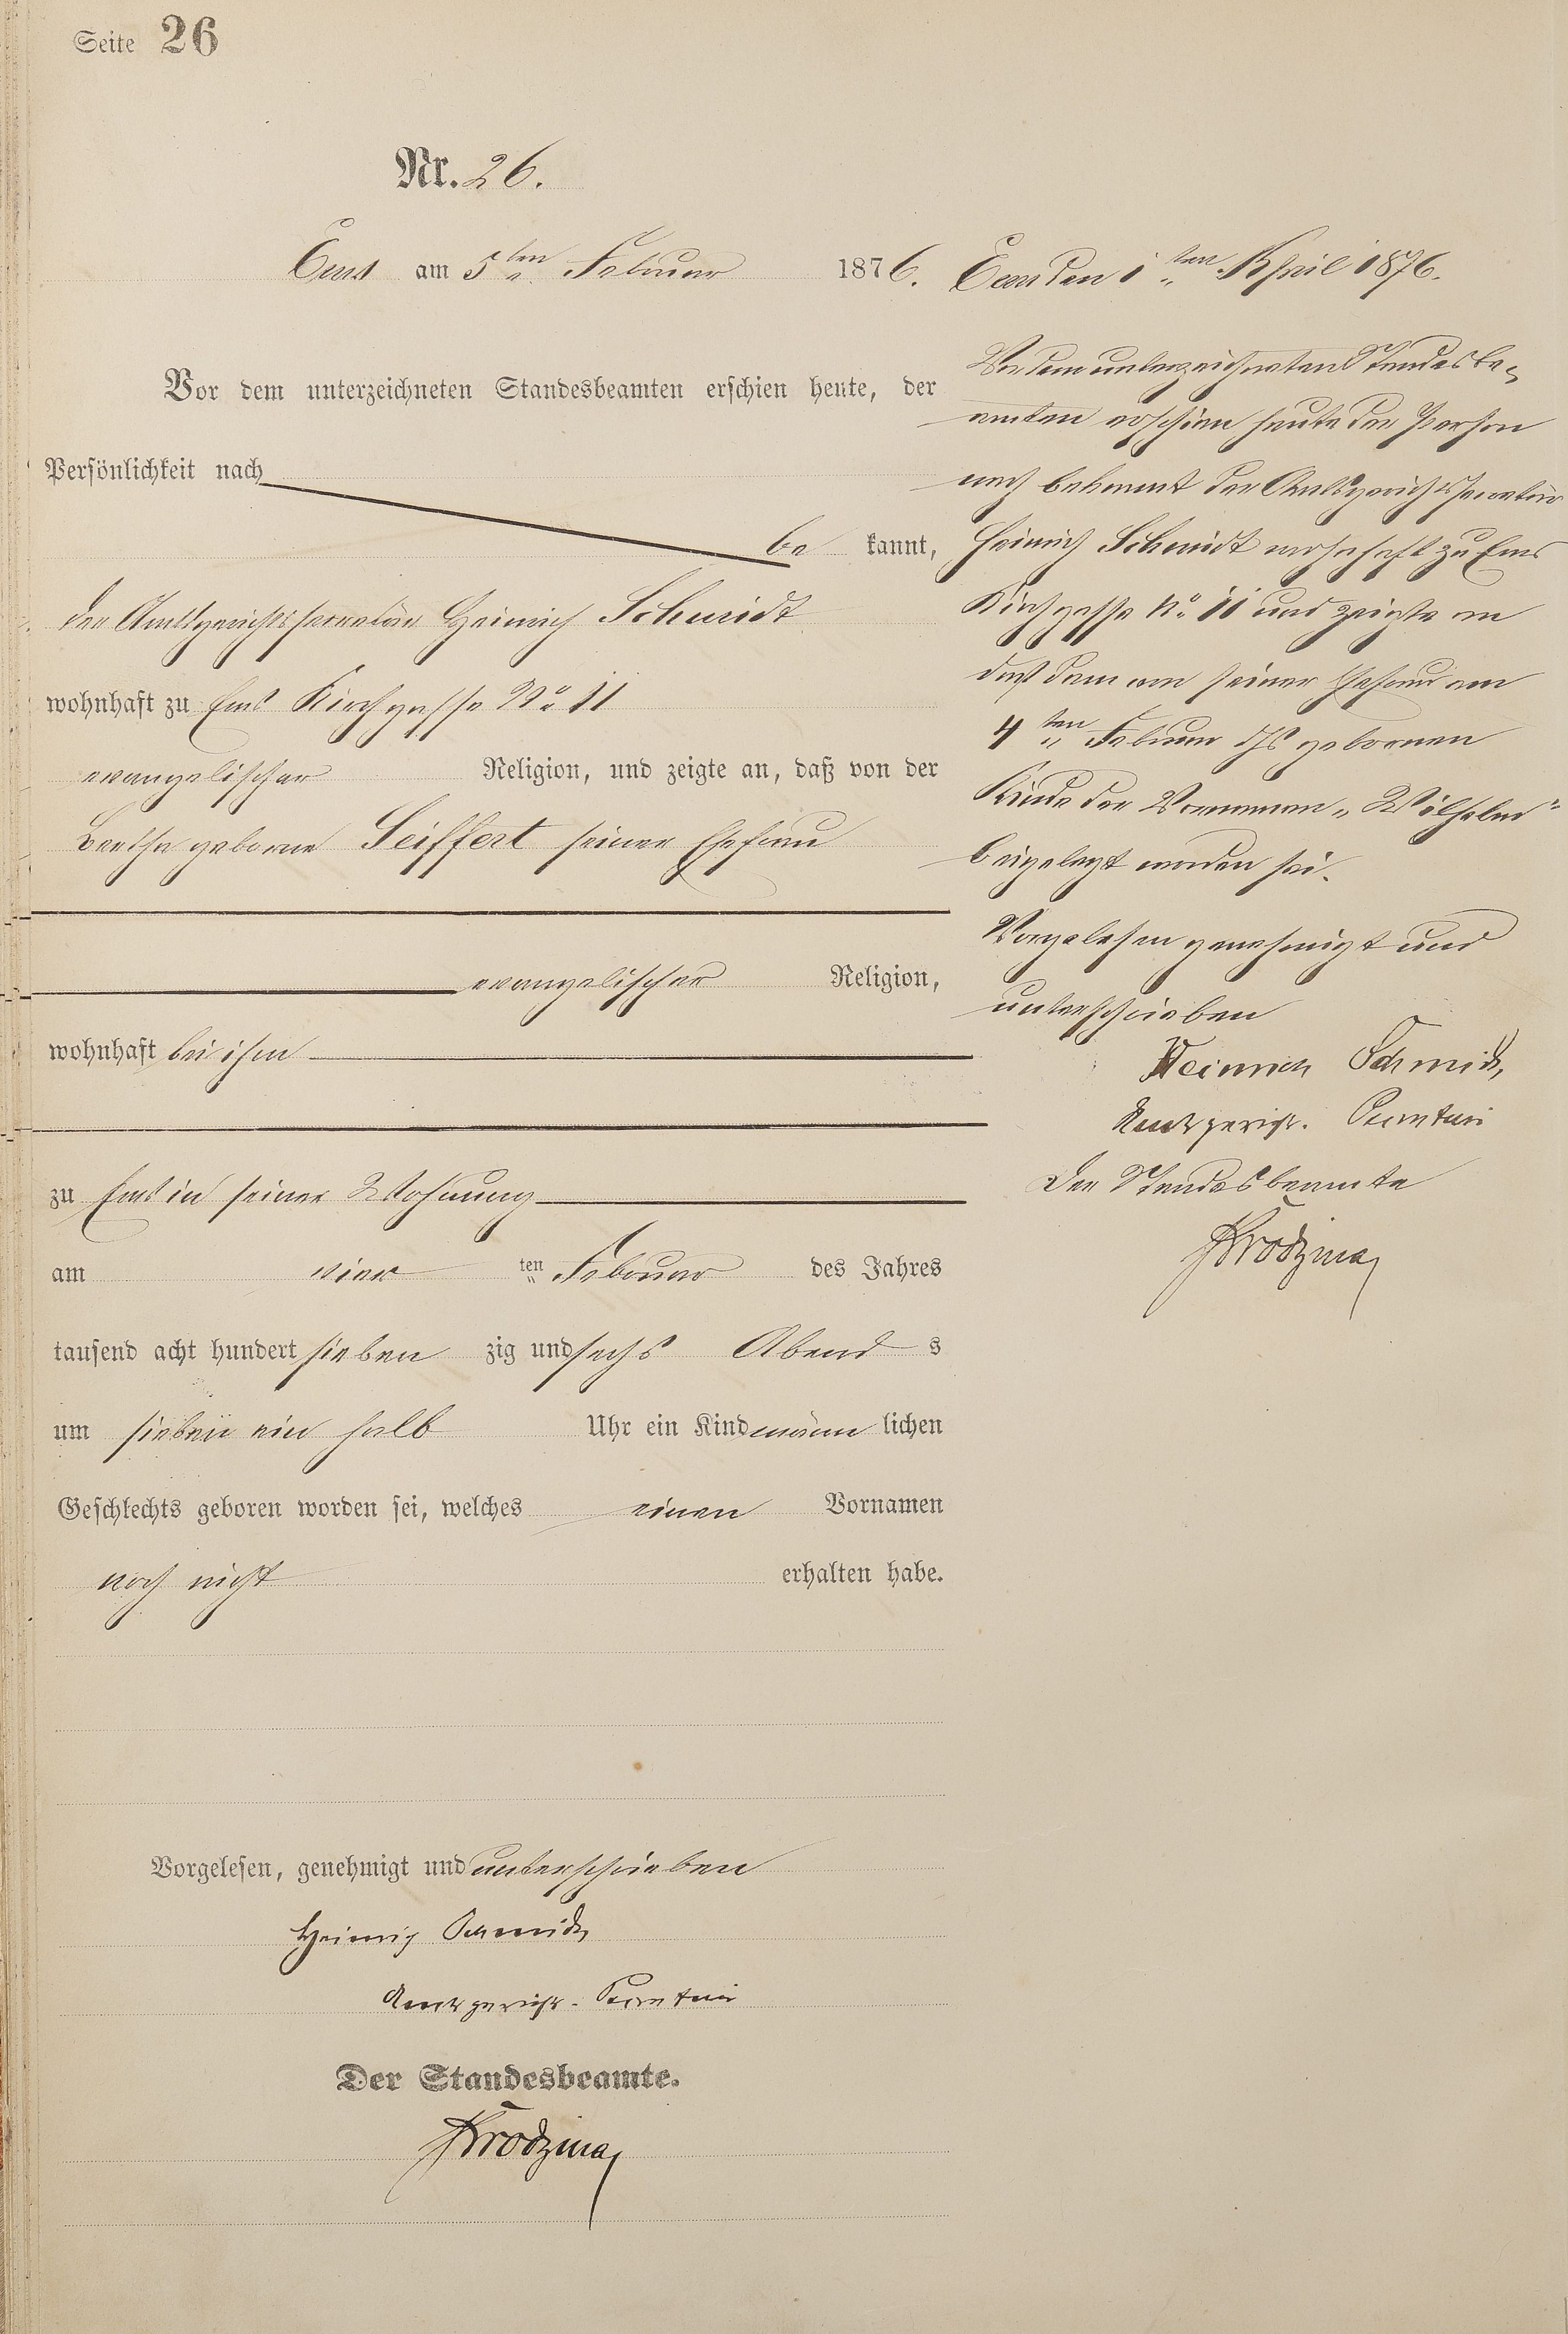 Seite 26
Nr. 26.
Ems am 5ten Februar 1876.
Vor dem unterzeichneten Standesbeamten erschien heute, der
Persönlichkeit nach
be kannt,
der Amtsgerichtssecretär Heinrich Schmidt
wohnhaft zu Ems Kirchgasse No 11
evangelischer Religion, und zeigte an, daß von der
Bertha geborne Seiffert seiner Ehefrau
evangelischer Religion,
wohnhaft bei ihm
zu Ems in seiner Wohnung
am vier ten Februar des Jahres
tausend acht hundert sieben zig und sechs Abend s
um sieben ein halb Uhr ein Kind männ lichen
Geschlechts geboren worden sei, welches einen Vornamen
noch nicht erhalten habe.
Vorgelesen, genehmigt und unterschrieben
Heinrich Schmidt
Amtsgerichts-Secretair
Der Standesbeamte.
Krodzina
Ems den 1ten April 1876.
Vor dem unterzeichneten Standesbe-
amten erschien heute der Person
nach bekannt der Amtsgerichtssecretär
Heinrich Schmidt wohnhaft zu Ems
Kirchgasse No 11 und zeigte an
daß dem von seiner Ehefrau am
4ten Februar d Js gebornen
Kinde der Vornamen „Wilhelm"
beigelegt worden sei.
Vorgelesen genehmigt und
unterschrieben
Heinrich Schmidt,
Amtsgerichts. Secretair
Der Standesbeamte
Krodzina